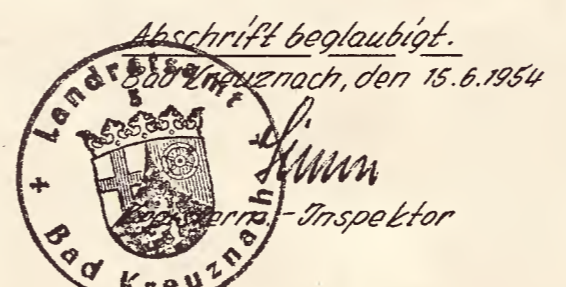 Abschrift beglaubigt.
Bad Kreuznach, den 15.6.1954
-Inspektor
Landratsamt
5
Bad Kreuznach